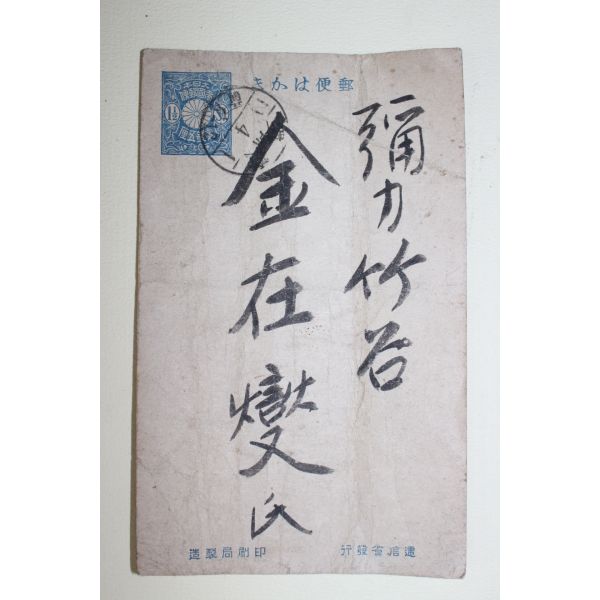 郵便はかき
1½
彌力竹谷
金在燮氏
遞信省發行
印刷局製造